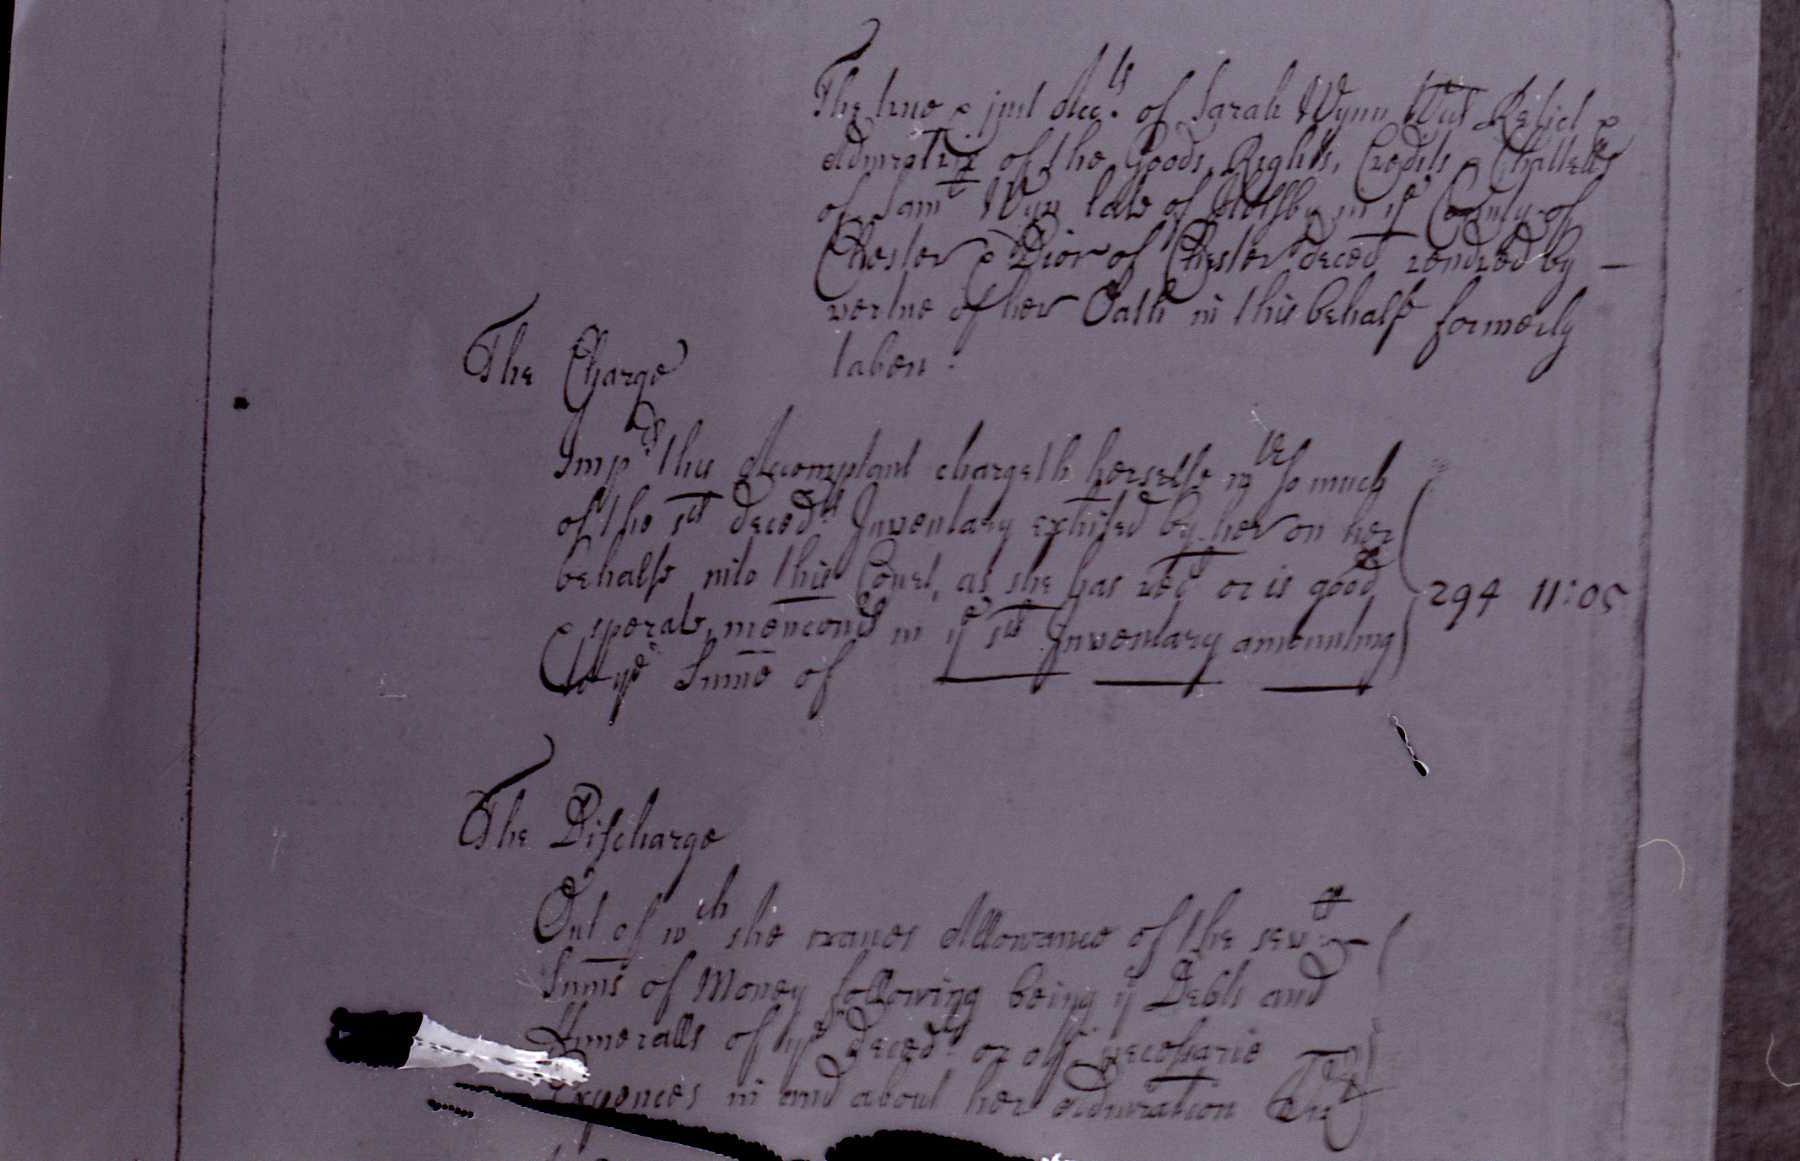 The true & just Acc.ts of Sarah Wynn Wid Relict &
Admratrix of the Goods, Rights, Credits & Chattells
of Sam.l Wyn late of in ye County of
Chester & Dior of Chester deced rendred by —
vertue of her Oath in this behalfe formerly
taken.
The Charge
Imp.rs this Accomptant chargeth herselfe wth so much
of the sd deced.ts Inventary exhited by her on her
behalfe into this Court, as she has reced or is good
& sperate, mencond in ye sd Inventary amounting
to ye Sume of
294 11:05
The Discharge
Out of wch she craves Allowance of the sev.ll
Sums of Money following being ye Debts and
Funeralls of ye deced.t or oth.r necessarie
Expences in and about her Admration